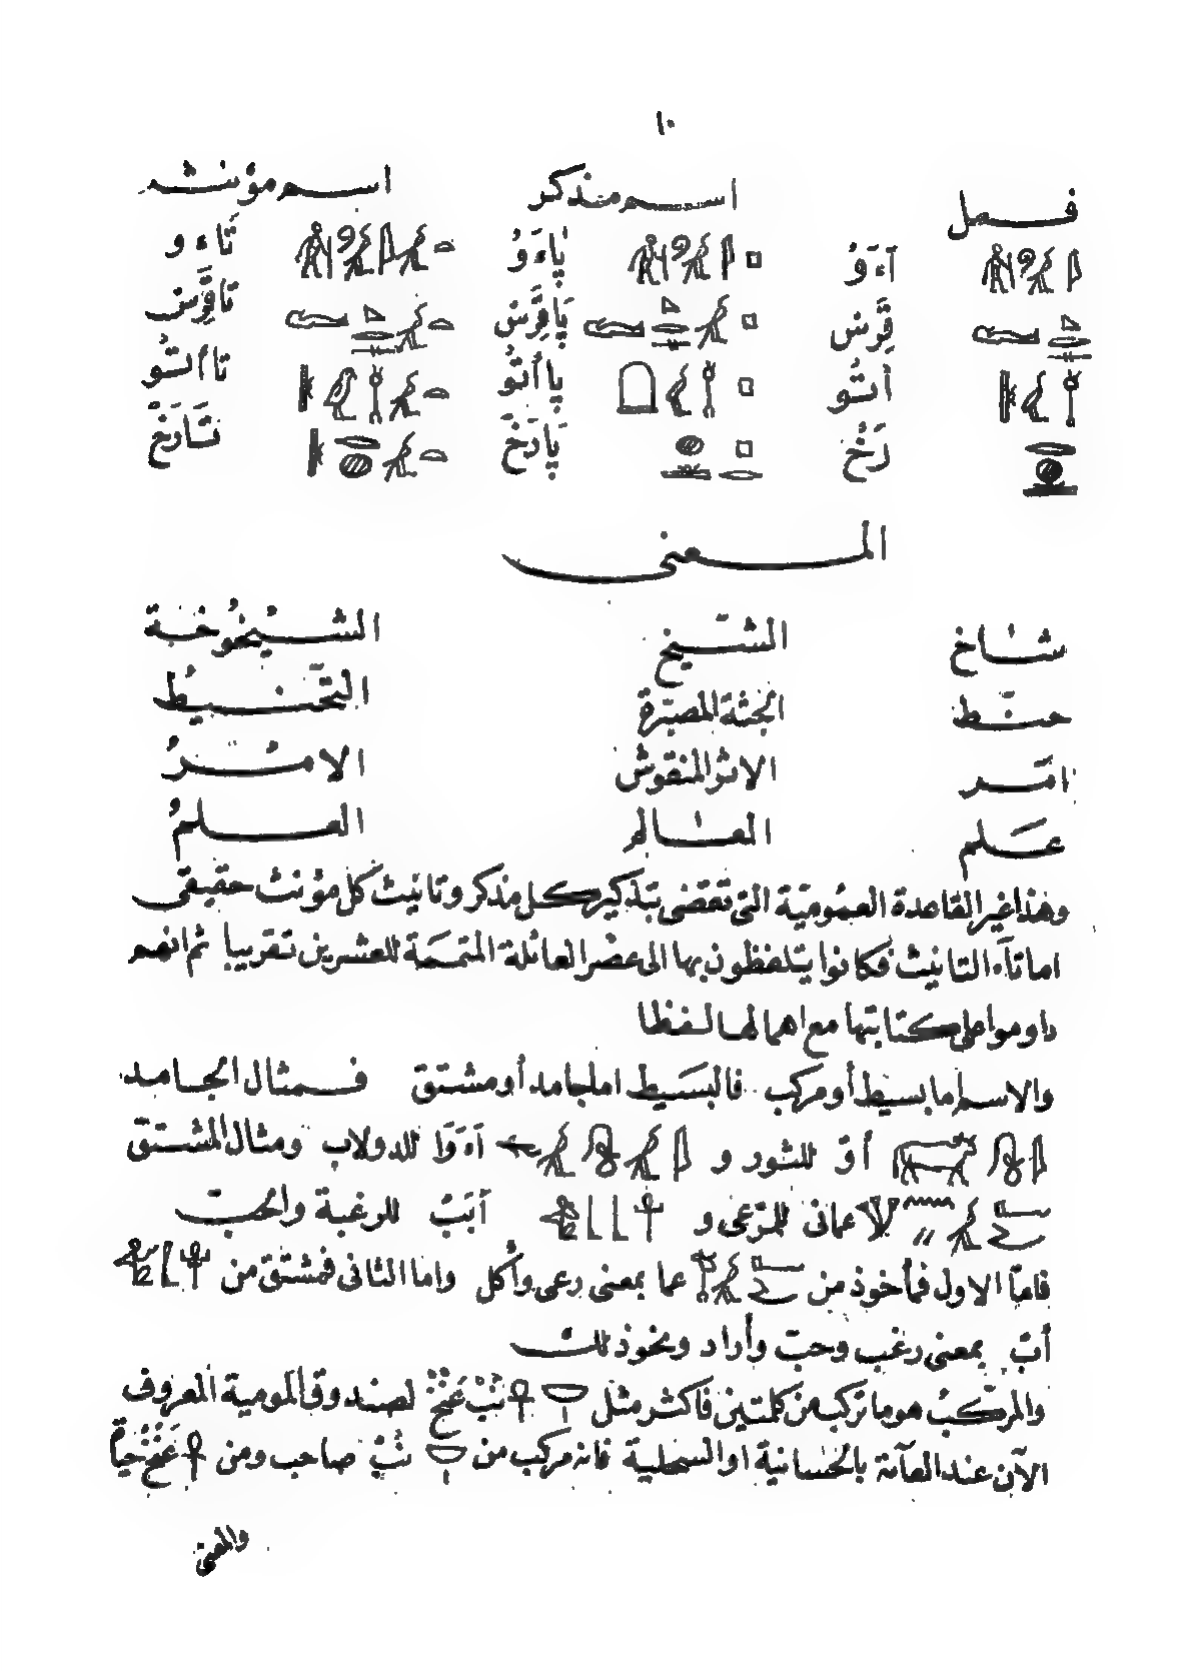 ١٠
فعل اسم مذكر اسم مؤنث
آءَوُ پَاءَوُ تَاءَو
قِرَّس پَاقِرَّس تاقِرَّس
أتُّو پاأتُّو تاأتُّو
رَخْ پَارَخْ تَارَخْ
المعنى
شاخ الشّيخ الشيخوخة
حنّط الجثة المصبّرة التّحنيطُ
امَر الاثر المنقوش الامرُ
عَلم العالم العلمُ
وهذا غير القاعدة العمومية التى تقضى بتذكير كل مذكر وتانيث كل مؤنث حقيقى
اما تآء التانيث فكانوا يتلفظون بها الى عصر العائلة المتممة للعشرين تقريبا ثم انهم
داوموا على كتابتها مع اهمالها لفظا
والاسم اما بسيط أو مركب فالبسيط اما جامد أو مشتق فمثال الجامد
أوّ للثور و آءَوَا للدولاب ومثال المشتق
عمانى للمرّعى و أبَبُ للرغبة والحبّ
فامّا الاول فمأخوذ من عما بمعنى رعى وأكل واما الثانى فمشتق من
أبّ بمعنى رغب وحبّ وأراد ونحو ذلك
والمركّبُ هو ما تركب من كلمتين فاكثر مثل نَبْ عَنْخْ لصندوق المومية المعروف
الآن عند العآمة بالخسانية او السحلية فانه مركب من نَبْ صاحب ومن عَنْخْ حياة
والمعنى